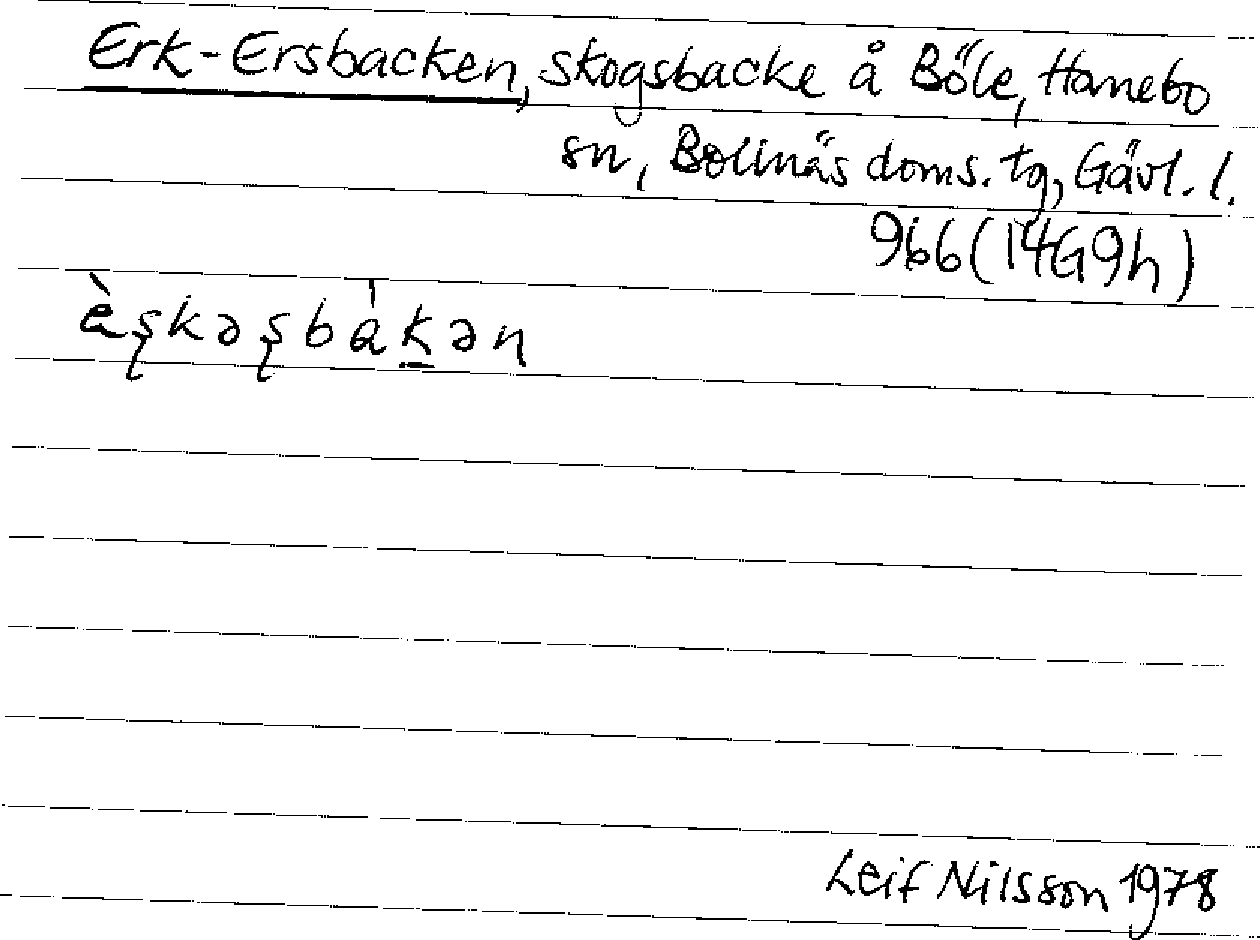 Erk-Ersbacken, skogsbacke å Böle, Hanebo
sn, Bollnäs doms. tg, Gävl. l.
966 (14G9h)
è̀ʂkəʂbàkən
Leif Nilsson 1978